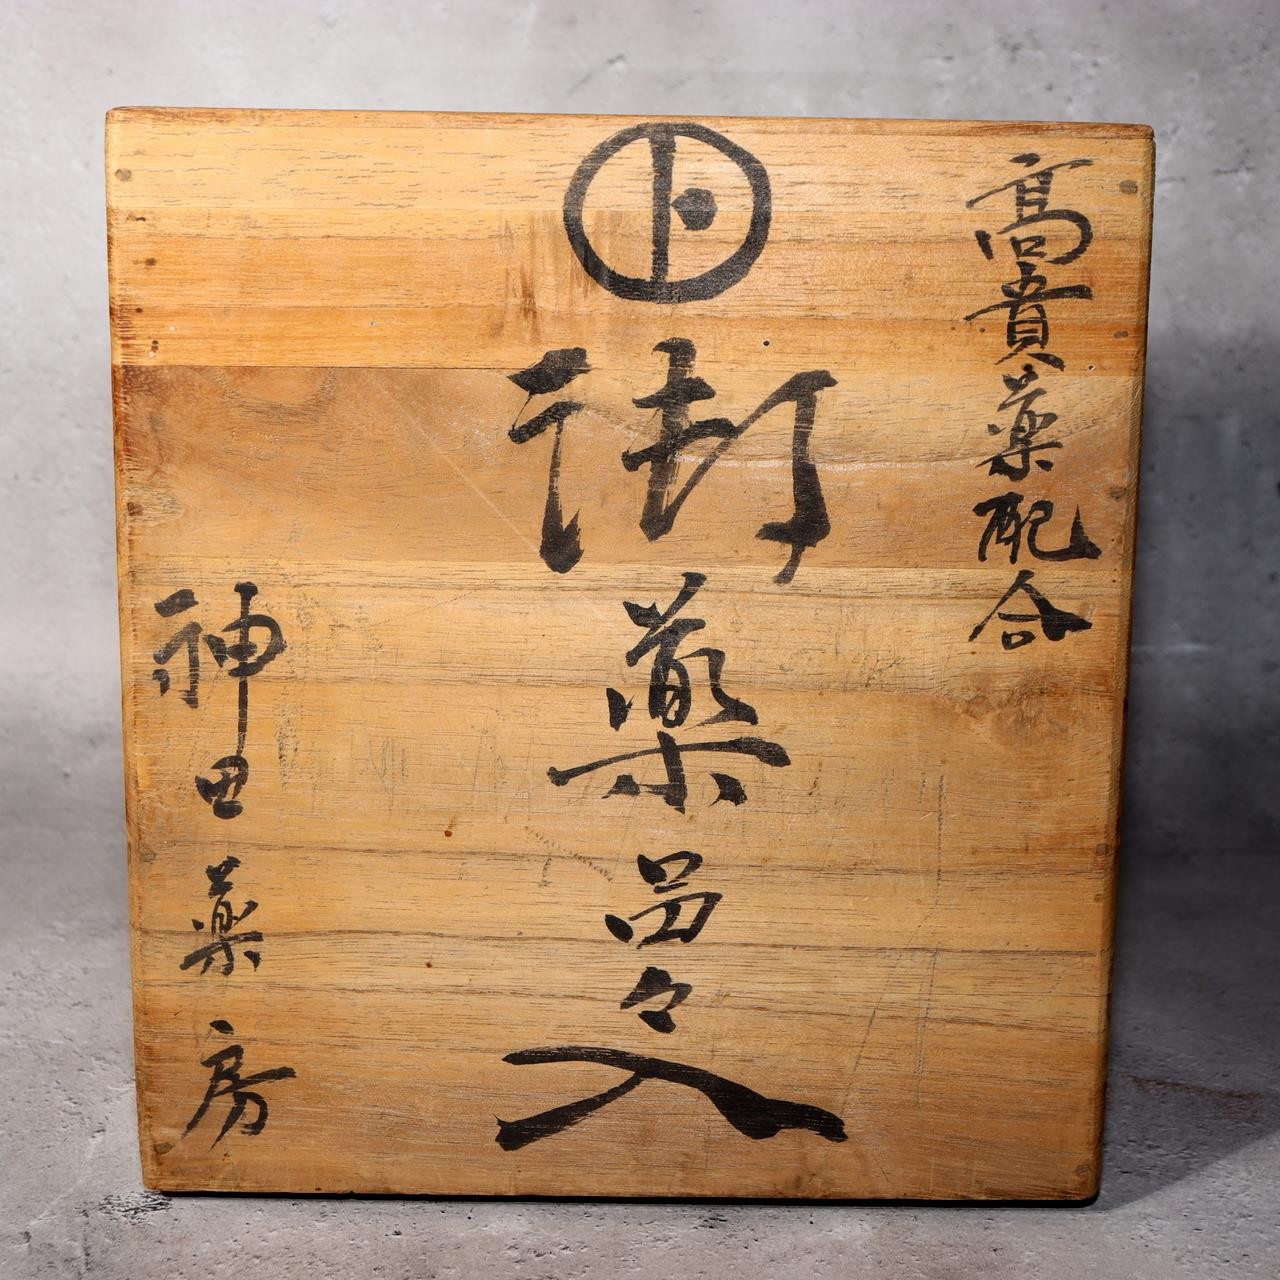 高貴薬配合
御薬品々入
神田薬房